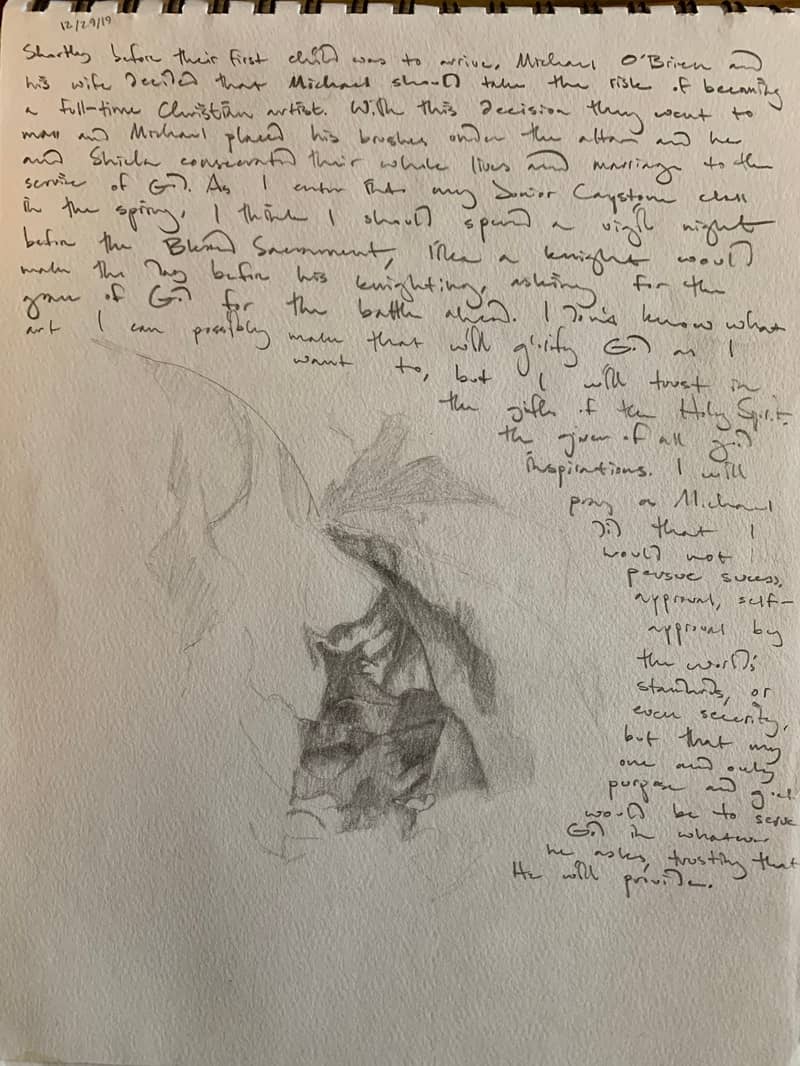 12/29/19
Shortly before their first child was to arrive, Michael O'Brien and
his wife decided that Michael should take the risk of becoming
a full-time Christian artist. With this decision they went to
mass and Michael placed his brushes under the altar and he
and Shiela consecrated their whole lives and marriage to the
service of God. As I enter into my Junior Capstone class
in the spring, I think I should spend a vigil night
before the Blessed Sacrament, like a knight would
make the day before his knighting, asking for the
grace of God for the battle ahead. I don't know what
art I can possibly make that will glorify God as I
want to, but I will trust in
the gifts of the Holy Spirit
the giver of all good
inspirations. I will
pray as Michael
did that I
would not
persue sucess,
approval, self-
approval by
the world's
standards, or
even security,
but that my
one and only
purpose and goal
would be to serve
God in whatever
he asks, trusting that
He will provide.